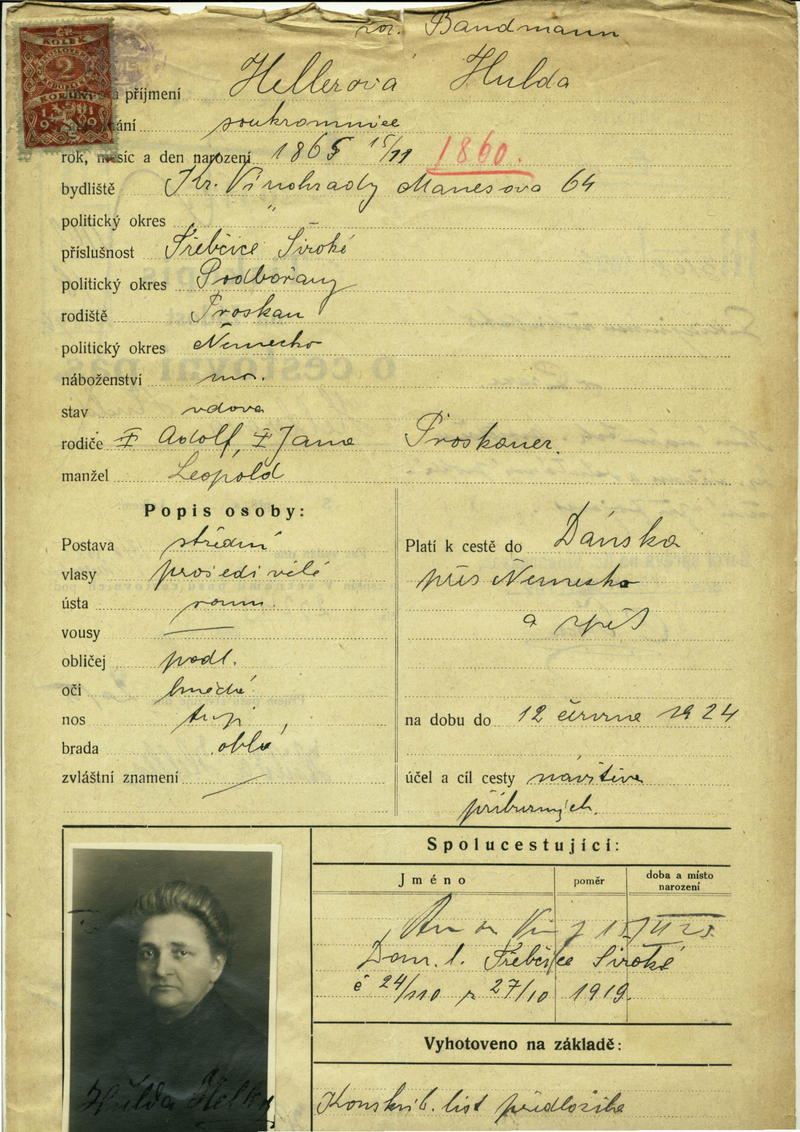 roz. Bandmann
KOLEK
2
KORUNY
1919
příjmení Hellerová Hulda
soukromnice
rok, měsíc a den narození 1865 15/11 1860.
bydliště Kr. Vinohrady Manesova 64
politický okres "
příslušnost Třebčice Široké
politický okres Podbořany
rodiště Proskau
politický okres Německo
náboženství mos.
stav vdova
rodiče Adolf, Jana Proskauer.
manžel Leopold
Popis osoby:
Postava střední
vlasy prošedivělé
ústa rovn.
vousy —
obličej podl.
oči hnědé
nos tupý
brada oblá
zvláštní znamení —
Platí k cestě do Dánska
přes Německo
a zpět
na dobu do 12 června 1924
účel a cíl cesty návštěva
příbuzných.
Spolucestující:
Jméno poměr doba a místo narození
Dom. l. Třebčice Široké
č 24/110 z 27/10 1919.
Vyhotoveno na základě:
Konskrib. list předložila
Hulda Heller